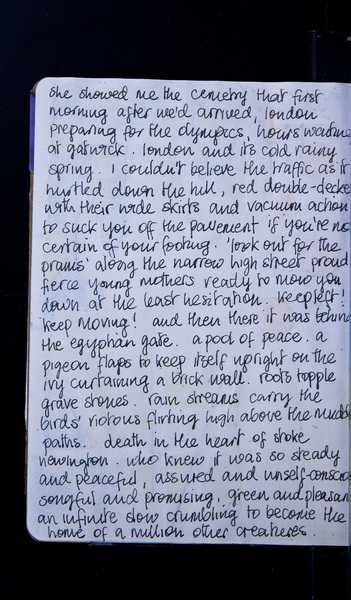 she showed me the cemetry that first
morning after we'd arrived, london
preparing for the olympics, hours waiting
at gatwick. london and its cold rainy
spring. i couldn't believe the traffic as it
hurtled down the hill, red double-decke
with their wide skirts and vacuum action
to suck you off the pavement if you're no
certain of your footing. 'look out for the
prams' along the narrow high street proud
fierce young mothers ready to mow you
down at the least hesitation. keep left!
keep moving! and then there it was behin
the egyptian gate. a pool of peace. a
pigeon flaps to keep itself upright on the
ivy curtaining a brick wall. roots topple
grave stones. rain streams carry the
birds' riotous flirting high above the mudd
paths. death in the heart of stoke
newington. who knew it was so steady
and peaceful, assured and unself-conscio
songful and promising, green and pleasan
an infinite slow crumbling to become the
home of a million other creatures.